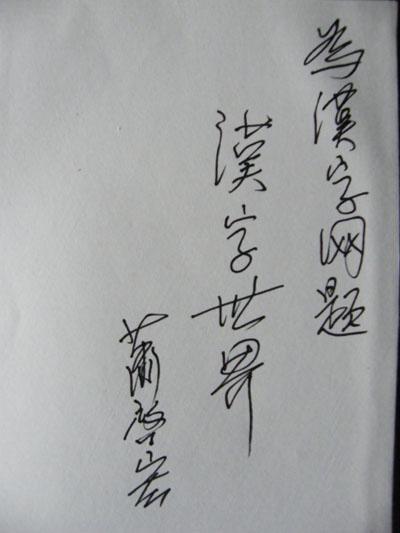 為漢字网题
漢字世界
蕭啓宏